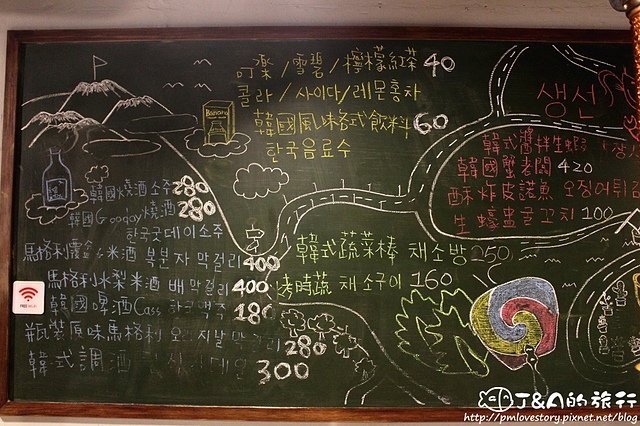 可樂/雪碧/檸檬紅茶 40
콜라/사이다/레몬홍차
韓國風味各式飲料 60
한국음료수
Banana
韓國燒酒 소주 280
韓國Good day燒酒 280
한국굿데이소주
馬格利覆盆子米酒 복분자 막걸리 400
馬格利水梨米酒 배 막걸리 400
韓國啤酒Cass 180
瓶裝原味馬格利 오리지날 막걸리 280
韓式調酒 300
韓式蔬菜棒 채소방 250
烤時蔬 채소구이 160
생선
韓式醬拌生蝦
韓國蟹老闆 420
酥炸皮諾魚 오징어튀
生蠔盅 굴꼬치 100
FREE Wi-Fi
J&A的旅行
http://pmlovestory.pixnet.net/blog